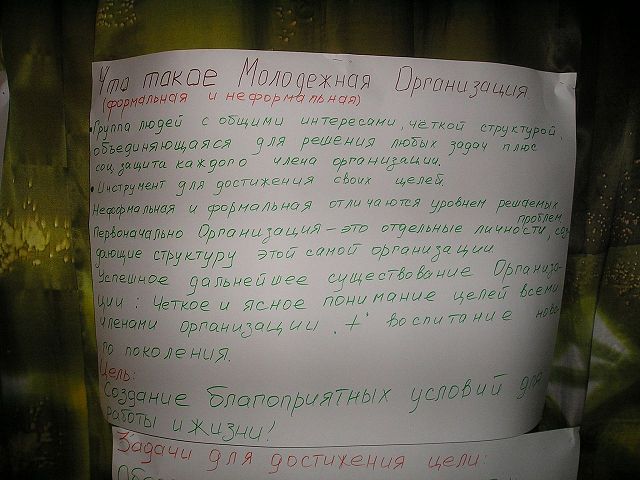 Что такое Молодежная Организация
(формальная и неформальная)
• Группа людей с общими интересами, чёткой структурой,
объединяющаяся для решения любых задач плюс
соц. защита каждого члена организации.
• Инструмент для достижения своих целей.
Неформальная и формальная отличаются уровнем решаемых
проблем
Первоначально Организация – это отдельные личности, соз
дающие структуру этой самой организации.
Успешное дальнейшее существование Организа-
ции: Четкое и ясное понимание целей всеми
членами организации. "+" воспитание ново
го поколения.
Цель:
Создание благоприятных условий для
работы и жизни!
Задачи для достижения цели: